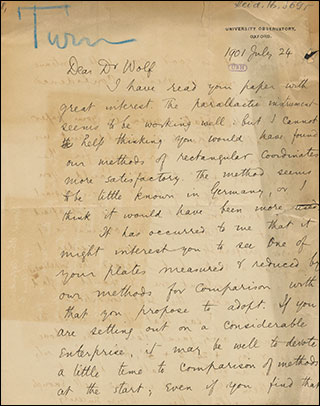 Turn
UNIVERSITY OBSERVATORY,
OXFORD.
1901 July 24
Dear Dr Wolf
I have read your paper with
great interest the parallactic instrument
seems to be working well: but I cannot
help thinking you would have found
our methods of rectangular coordinates
more satisfactory. The method seems
to be little known in Germany, or I
think it would have been more used
It has occurred to me that it
might interest you to see one of
your plates measured & reduced by
our methods for comparison with
that you propose to adopt. If you
are setting out on a considerable
enterprise, it may be well to devote
a little time to comparison of methods
at the start; Even if you find that